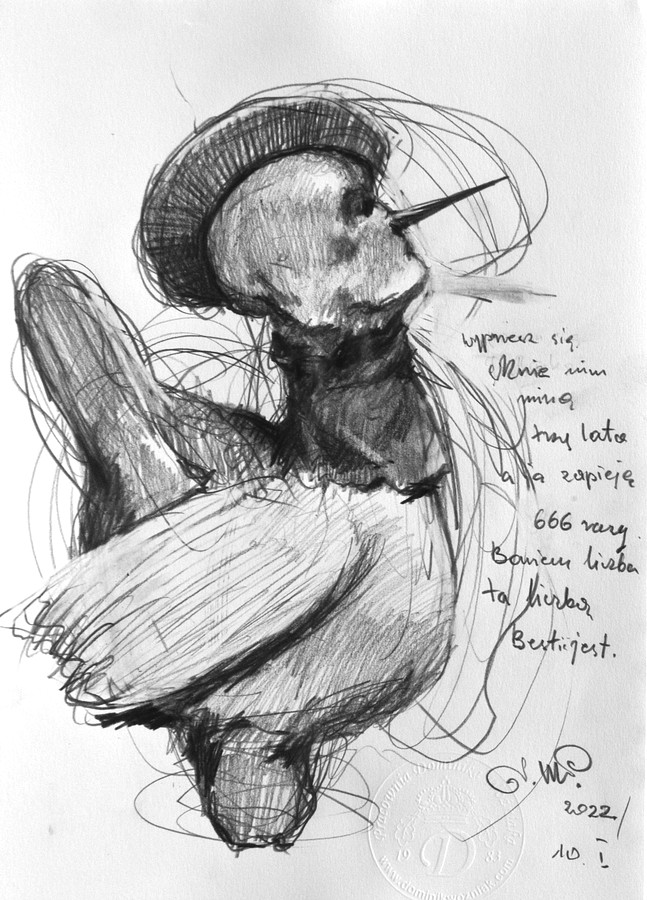 wyprzesz się
Mnie nim
miną
trzy lata
a ja zapieję
666 razy.
Bowiem liczba
ta liczbą
Bestii jest.
2022/
10. I
Pracownia Dominik
1983
www.dominikwozniak.com